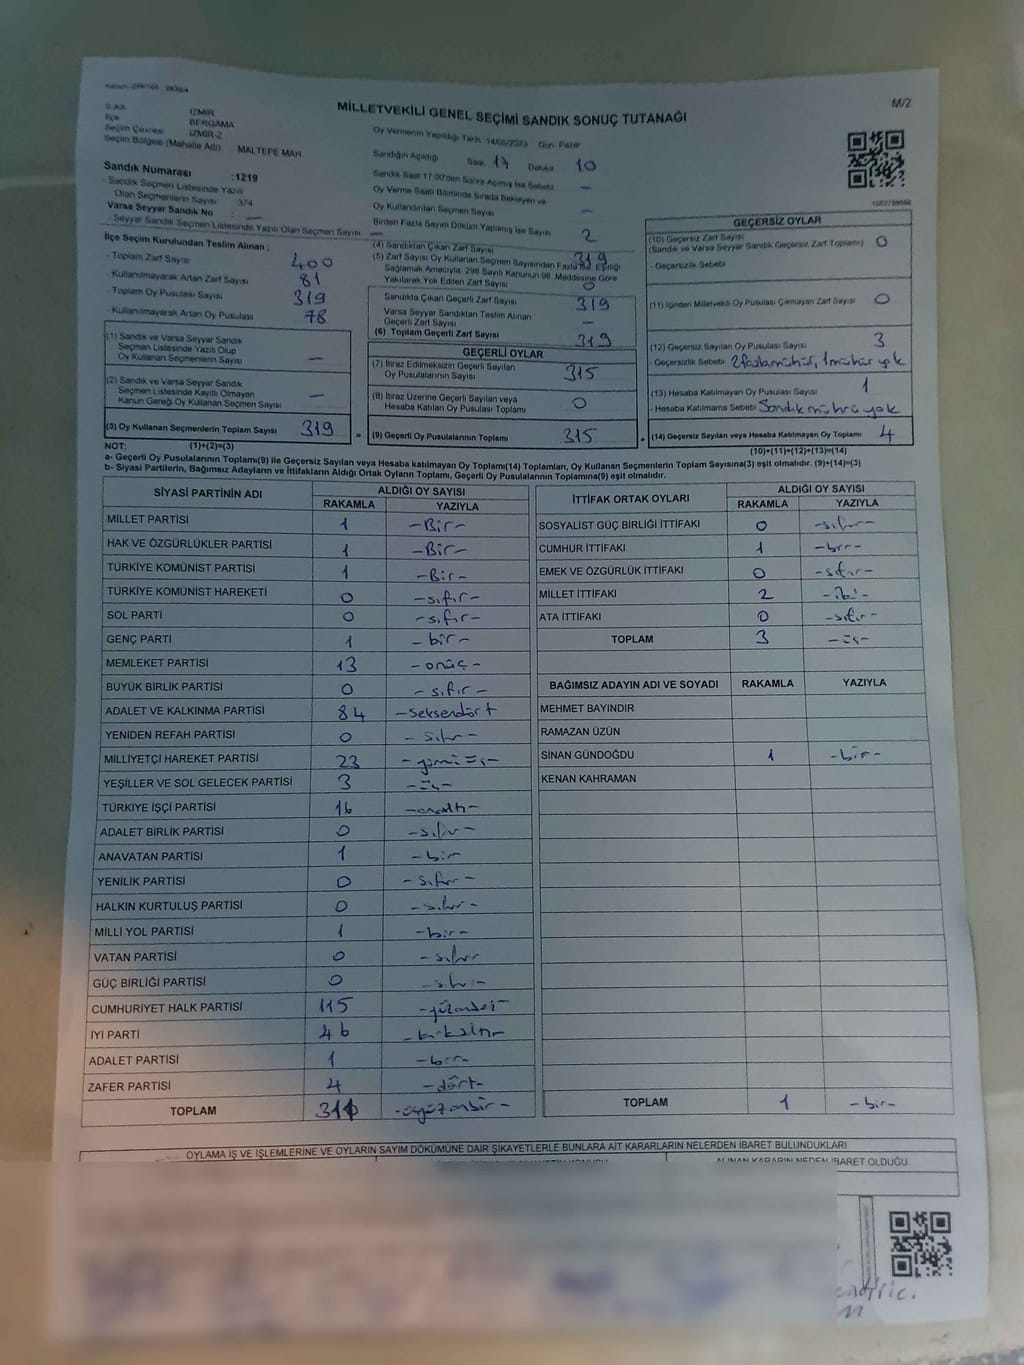 MİLLETVEKİLİ GENEL SEÇİMİ SANDIK SONUÇ TUTANAĞI
M/2
İli Adı İZMİR
İlçe BERGAMA
Seçim Çevresi İZMİR-2
Seçim Bölgesi (Mahalle Adı) MALTEPE MAH.
Sandık Numarası :1219
- Sandık Seçmen Listesinde Yazılı
Olan Seçmenlerin Sayısı 374
Varsa Seyyar Sandık No : —
- Seyyar Sandık Seçmen Listesinde Yazılı Olan Seçmen Sayısı —
Oy Vermenin Yapıldığı Tarih 14/05/2023 Gün: Pazar
Sandığın Açıldığı Saat 17 Dakika 10
Sandık Saat 17:00'den Sonra Açılmış İse Sebebi —
Oy Verme Saati Bitiminde Sırada Bekleyen ve
Oy Kullandırılan Seçmen Sayısı —
Birden Fazla Sayım Döküm Yapılmış İse Sayısı 2
İlçe Seçim Kurulundan Teslim Alınan :
- Toplam Zarf Sayısı 400
- Kullanılmayarak Artan Zarf Sayısı 81
- Toplam Oy Pusulası Sayısı 319
- Kullanılmayarak Artan Oy Pusulası 78
(1) Sandık ve Varsa Seyyar Sandık
Seçmen Listesinde Yazılı Olup
Oy Kullanan Seçmenlerin Sayısı —
(2) Sandık ve Varsa Seyyar Sandık
Seçmen Listesinde Kayıtlı Olmayan
Kanun Gereği Oy Kullanan Seçmen Sayısı —
(3) Oy Kullanan Seçmenlerin Toplam Sayısı 319
(4) Sandıktan Çıkan Zarf Sayısı 319
(5) Zarf Sayısı Oy Kullanan Seçmen Sayısından Fazla ise, Eşitliği
Sağlamak Amacıyla, 298 Sayılı Kanunun 98. Maddesine Göre
Yakılarak Yok Edilen Zarf Sayısı 0
Sandıkta Çıkan Geçerli Zarf Sayısı 319
Varsa Seyyar Sandıktan Teslim Alınan
Geçerli Zarf Sayısı —
(6) Toplam Geçerli Zarf Sayısı 319
GEÇERLİ OYLAR
(7) İtiraz Edilmeksizin Geçerli Sayılan
Oy Pusulalarının Sayısı 315
(8) İtiraz Üzerine Geçerli Sayılan veya
Hesaba Katılan Oy Pusulası Toplamı 0
= (9) Geçerli Oy Pusulalarının Toplamı 315
GEÇERSİZ OYLAR
(10) Geçersiz Zarf Sayısı
(Sandık ve Varsa Seyyar Sandık Geçersiz Zarf Toplamı) 0
- Geçersizlik Sebebi
(11) İçinden Milletvekili Oy Pusulası Çıkmayan Zarf Sayısı 0
(12) Geçersiz Sayılan Oy Pusulası Sayısı 3
- Geçersizlik Sebebi 2 fazla mühür, 1 mühür yok
(13) Hesaba Katılmayan Oy Pusulası Sayısı 1
- Hesaba Katılmama Sebebi Sandık mührü yok
+ (14) Geçersiz Sayılan veya Hesaba Katılmayan Oy Toplamı 4
NOT: (1)+(2)=(3) (10)+(11)+(12)+(13)=(14)
a- Geçerli Oy Pusulalarının Toplamı(9) ile Geçersiz Sayılan veya Hesaba katılmayan Oy Toplamı(14) Toplamları, Oy Kullanan Seçmenlerin Toplam Sayısına(3) eşit olmalıdır. (9)+(14)=(3)
b- Siyasi Partilerin, Bağımsız Adayların ve İttifakların Aldığı Ortak Oyların Toplamı, Geçerli Oy Pusulalarının Toplamına(9) eşit olmalıdır.
SİYASİ PARTİNİN ADI ALDIĞI OY SAYISI
RAKAMLA YAZIYLA
MİLLET PARTİSİ 1 -Bir-
HAK VE ÖZGÜRLÜKLER PARTİSİ 1 -Bir-
TÜRKİYE KOMÜNİST PARTİSİ 1 -Bir-
TÜRKİYE KOMÜNİST HAREKETİ 0 -sıfır-
SOL PARTİ 0 -sıfır-
GENÇ PARTİ 1 -bir-
MEMLEKET PARTİSİ 13 -onüç-
BÜYÜK BİRLİK PARTİSİ 0 -sıfır-
ADALET VE KALKINMA PARTİSİ 84 -seksendört
YENİDEN REFAH PARTİSİ 0 -sıfır-
MİLLİYETÇİ HAREKET PARTİSİ 23 -yirmiüç-
YEŞİLLER VE SOL GELECEK PARTİSİ 3 -üç-
TÜRKİYE İŞÇİ PARTİSİ 16 -onaltı-
ADALET BİRLİK PARTİSİ 0 -sıfır-
ANAVATAN PARTİSİ 1 -bir
YENİLİK PARTİSİ 0 -sıfır-
HALKIN KURTULUŞ PARTİSİ 0 -sıfır-
MİLLİ YOL PARTİSİ 1 -bir-
VATAN PARTİSİ 0 -sıfır
GÜÇ BİRLİĞİ PARTİSİ 0 -sıfır-
CUMHURİYET HALK PARTİSİ 115 -yüzonbeş-
İYİ PARTİ 46 -kırkaltı-
ADALET PARTİSİ 1 -bir-
ZAFER PARTİSİ 4 -dört-
TOPLAM 311 -üçyüzonbir-
İTTİFAK ORTAK OYLARI ALDIĞI OY SAYISI
RAKAMLA YAZIYLA
SOSYALİST GÜÇ BİRLİĞİ İTTİFAKI 0 -sıfır-
CUMHUR İTTİFAKI 1 -bir-
EMEK VE ÖZGÜRLÜK İTTİFAKI 0 -sıfır-
MİLLET İTTİFAKI 2 -iki-
ATA İTTİFAKI 0 -sıfır-
TOPLAM 3 -üç-
BAĞIMSIZ ADAYIN ADI VE SOYADI RAKAMLA YAZIYLA
MEHMET BAYINDIR
RAMAZAN ÜZÜN
SİNAN GÜNDOĞDU 1 -bir-
KENAN KAHRAMAN
TOPLAM 1 -bir-
OYLAMA İŞ VE İŞLEMLERİNE VE OYLARIN SAYIM DÖKÜMÜNE DAİR ŞİKAYETLERLE BUNLARA AİT KARARLARIN NELERDEN İBARET BULUNDUKLARI
ALINAN KARARIN NEDEN İBARET OLDUĞU